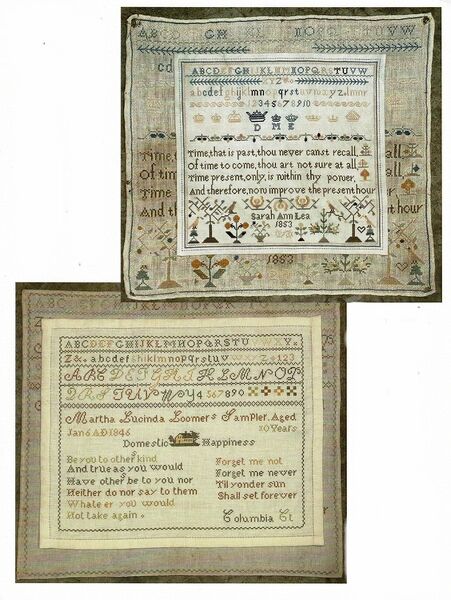 ABCDEFGHIJKLMNOPQRSTUVW
XYZ
abcdefghijklmnopqrstuvwxyz.lmnr
12345678910
D M E
Time,that is past,thou never canst recall,
Of time to come,thou art not sure at all,
Time present,only,is within thy power,
And therefore,now improve the present hour
Sarah Ann Lea
1853
1853
ABCDEFGHIJKLMNOPQRSTUVWXYZ.
Z&. abcdefghiklmnopqrstuv Z 123
ABCDEFGHIJKLMNOP
QRSTUVWXY4567890
Martha Lucinda Loomers Sampler. Aged
Jan 6 AD 1846 10 Years
Domestic Happiness
Be you to others kind
And true as you would
Have others be to you nor
Neither do nor say to them
Whate er you would
Not take again.
Forget me not
Forget me never
Til yonder sun
Shall set forever
Columbia Ct